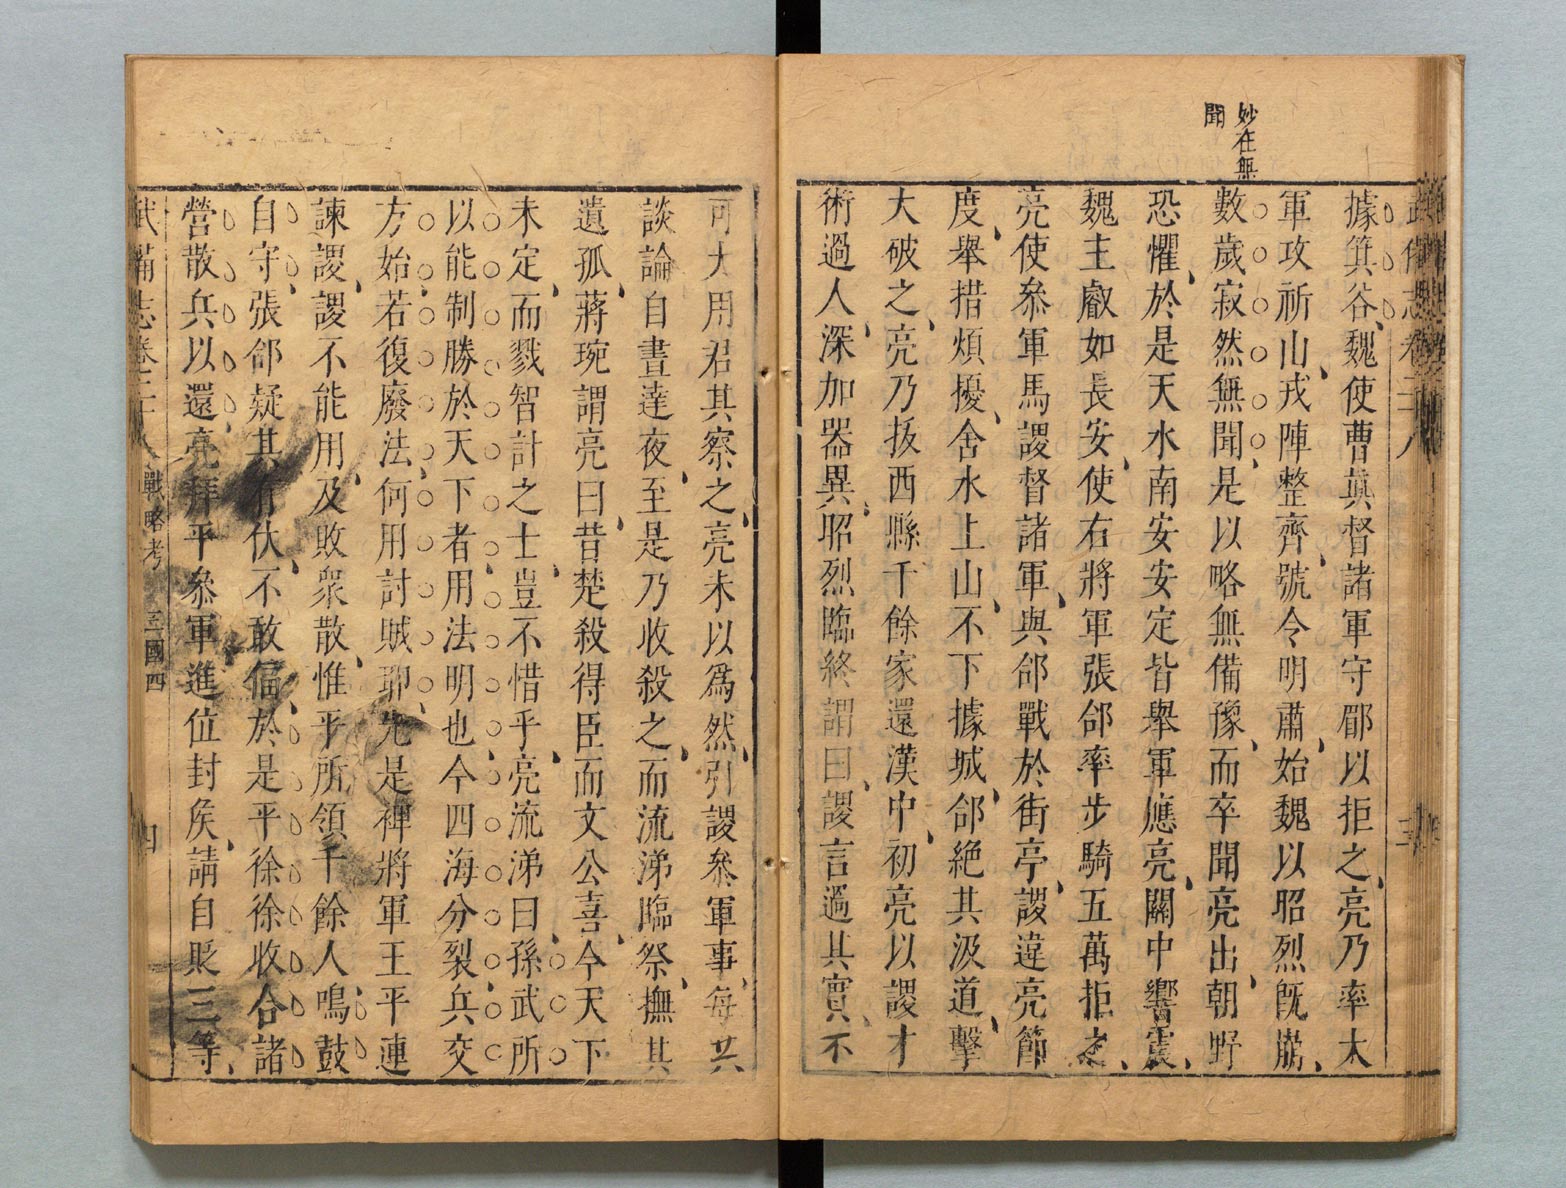 妙在無
聞
據箕谷魏使曹眞督諸軍守郿以拒之亮乃率大
軍攻祈山戎陣整齊號令明肅始魏以昭烈旣崩
數歲寂然無聞是以略無備豫而卒聞亮出朝野
恐懼於是天水南安安定皆舉軍應亮關中響震
魏主叡如長安使右將軍張郃率步騎五萬拒之
亮使叅軍馬謖督諸軍與郃戰於街亭謖違亮節
度舉措煩擾舍水上山不下據城郃絶其汲道擊
大破之亮乃拔西縣千餘家還漢中初亮以謖才
術過人深加器異昭烈臨終謂曰謖言過其實不
可大用君其察之亮未以爲然引謖叅軍事每共
談論自晝達夜至是乃收殺之而流涕臨祭撫其
遺孤蔣琬謂亮曰昔楚殺得臣而文公喜今天下
未定而戮智計之士豈不惜乎亮流涕曰孫武所
以能制勝於天下者用法明也今四海分裂兵交
方始若復廢法何用討賊耶先是裨將軍王平連
諫謖謖不能用及敗衆散惟平所領千餘人鳴鼓
自守張郃疑其有伏不敢偪於是平徐徐收合諸
營散兵以還亮拜平叅軍進位封矦請自貶三等
武備志卷二十八 戰略考 三國四 四